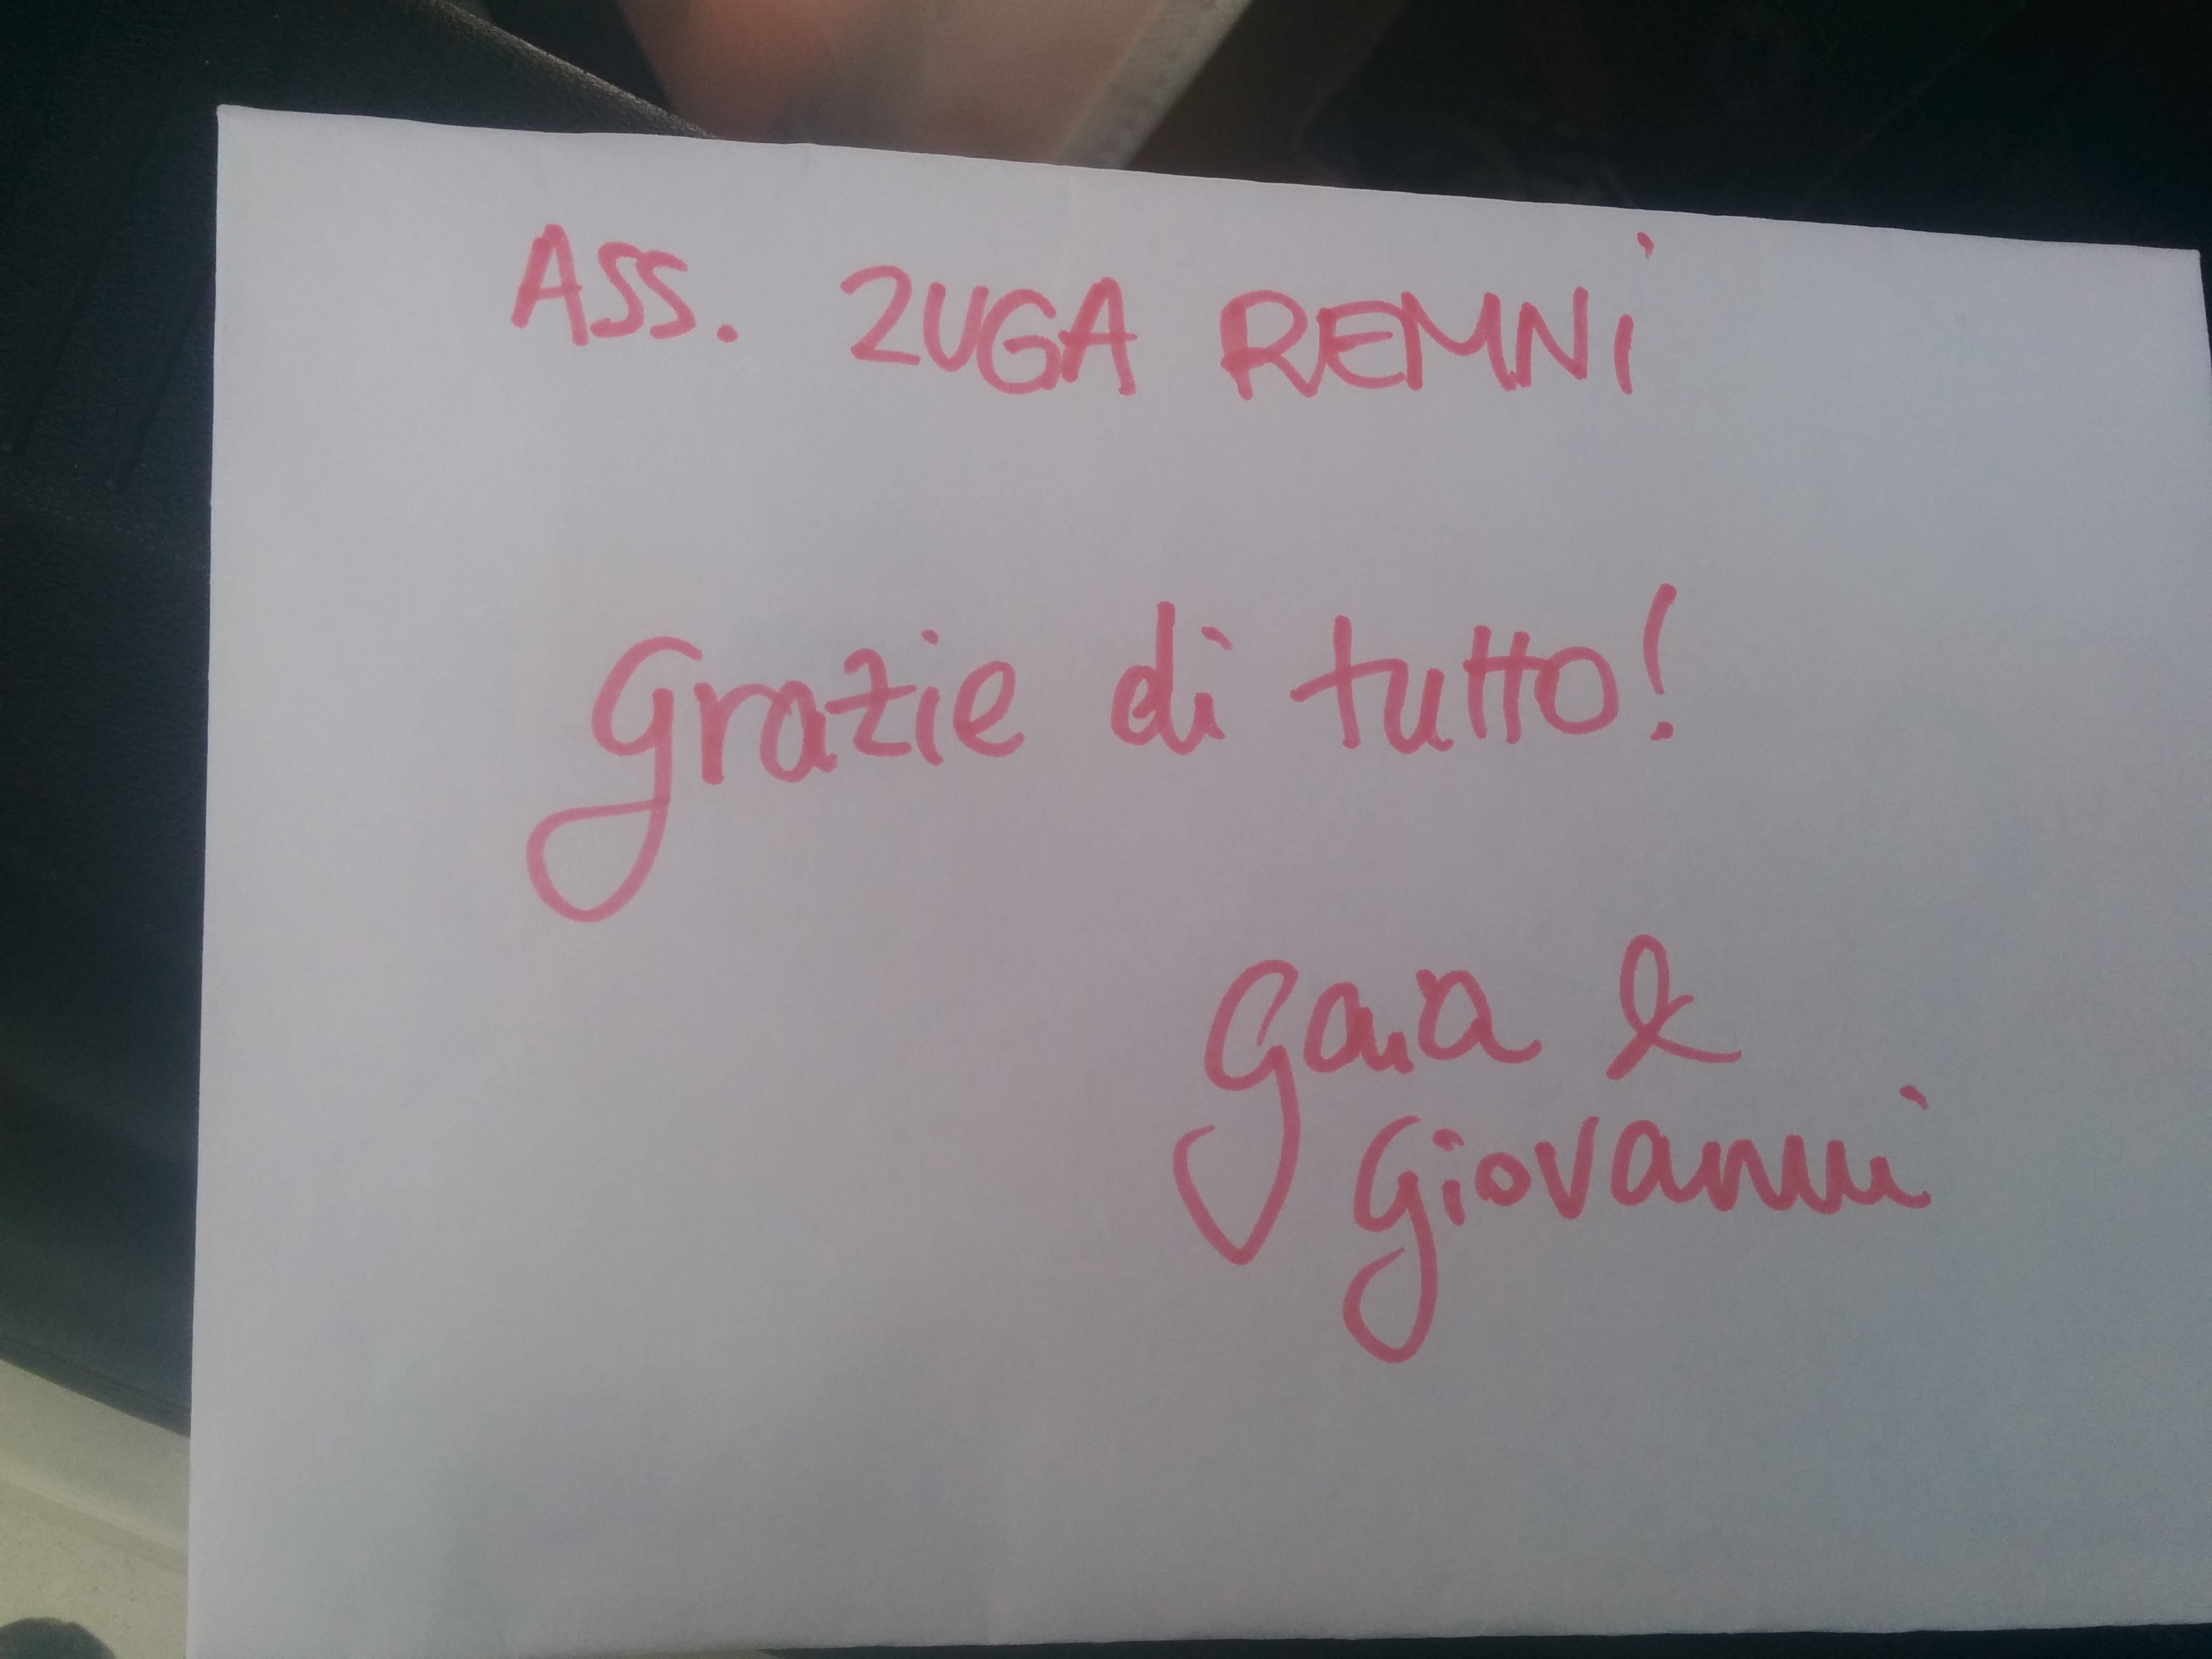 ASS. ZUGA REMNi
Grazie di tutto!
Gaia &
Giovanni